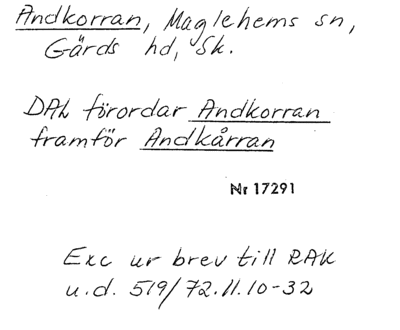 Andkorran, Maglehems sn,
Gärds hd, Sk.
DAL förordar Andkorran
framför Andkårran
Nr 17291
Exc ur brev till RAK
u.d. 519/72.11.10-32